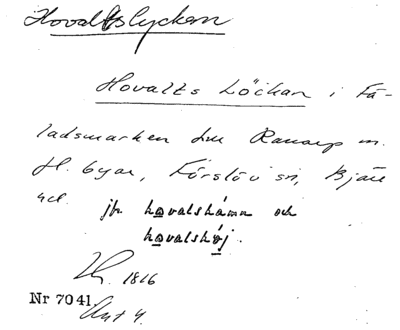 Hovaltslycken
Hovalts Löckan i Fä-
ladsmarken t. m. Ranarp m.
fl. byar, Förslöv sn, Bjäre
hd. jfr hovalshamn och
hovalshöj.
1816
Nr 7041.
Ant 4.